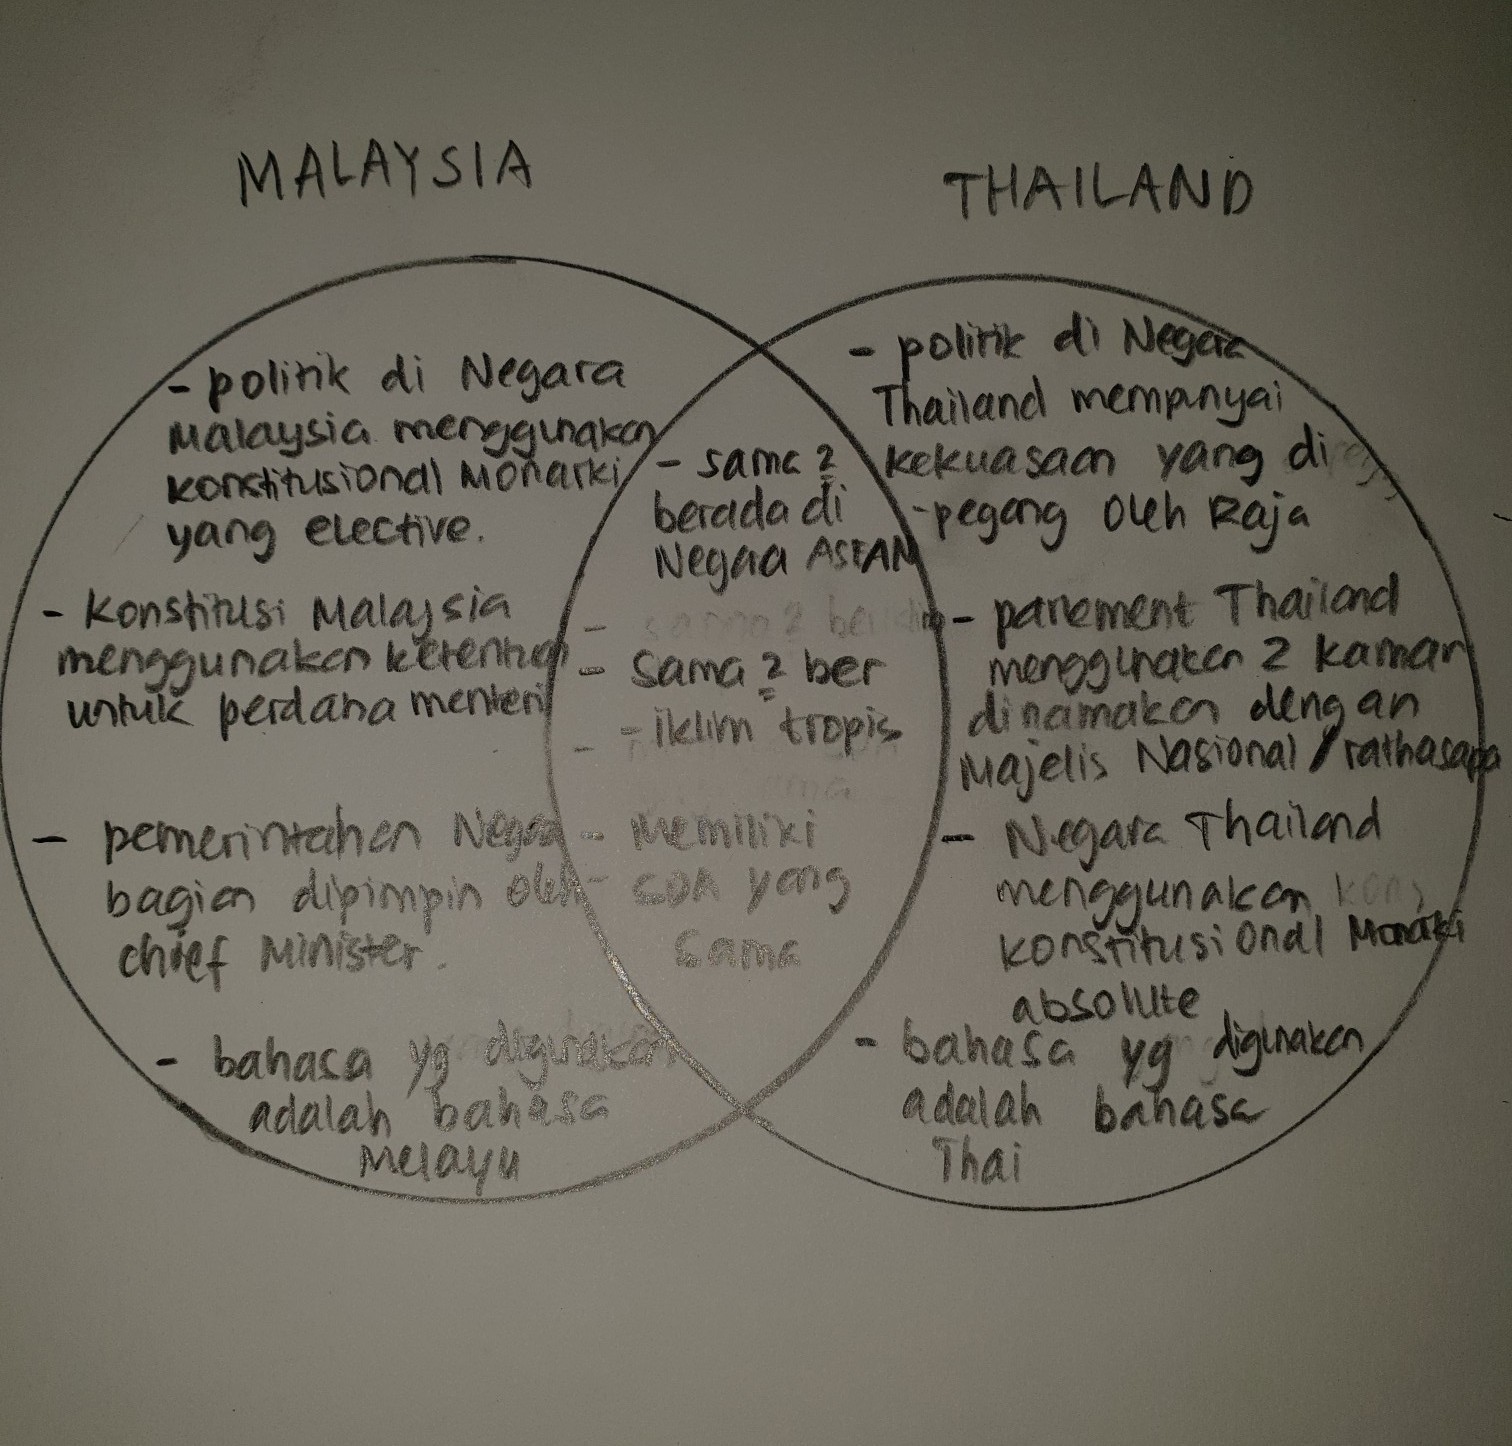 MALAYSIA
THAILAND
- politik di Negara
Malaysia menggunakan
konstitusional Monarki
yang elective.
- Konstitusi Malaysia
menggunakan ketentuan
untuk perdana menteri
- pemerintahan Negara
bagian dipimpin oleh
chief Minister.
- bahasa yg digunakan
adalah bahasa
Melayu
- sama 2
berada di
Negara ASEAN
- sama 2 ber
- sama 2 ber
- iklim tropis
- Memiliki
- SDA yang
sama
- politik di Negara
Thailand mempunyai
kekuasaan yang di
-pegang oleh Raja
- parlement Thailand
menggunakan 2 kamar
dinamakan dengan
Majelis Nasional / rathasapa
- Negara Thailand
menggunakan
konstitusional Monarki
absolute
- bahasa yg digunakan
adalah bahasa
Thai